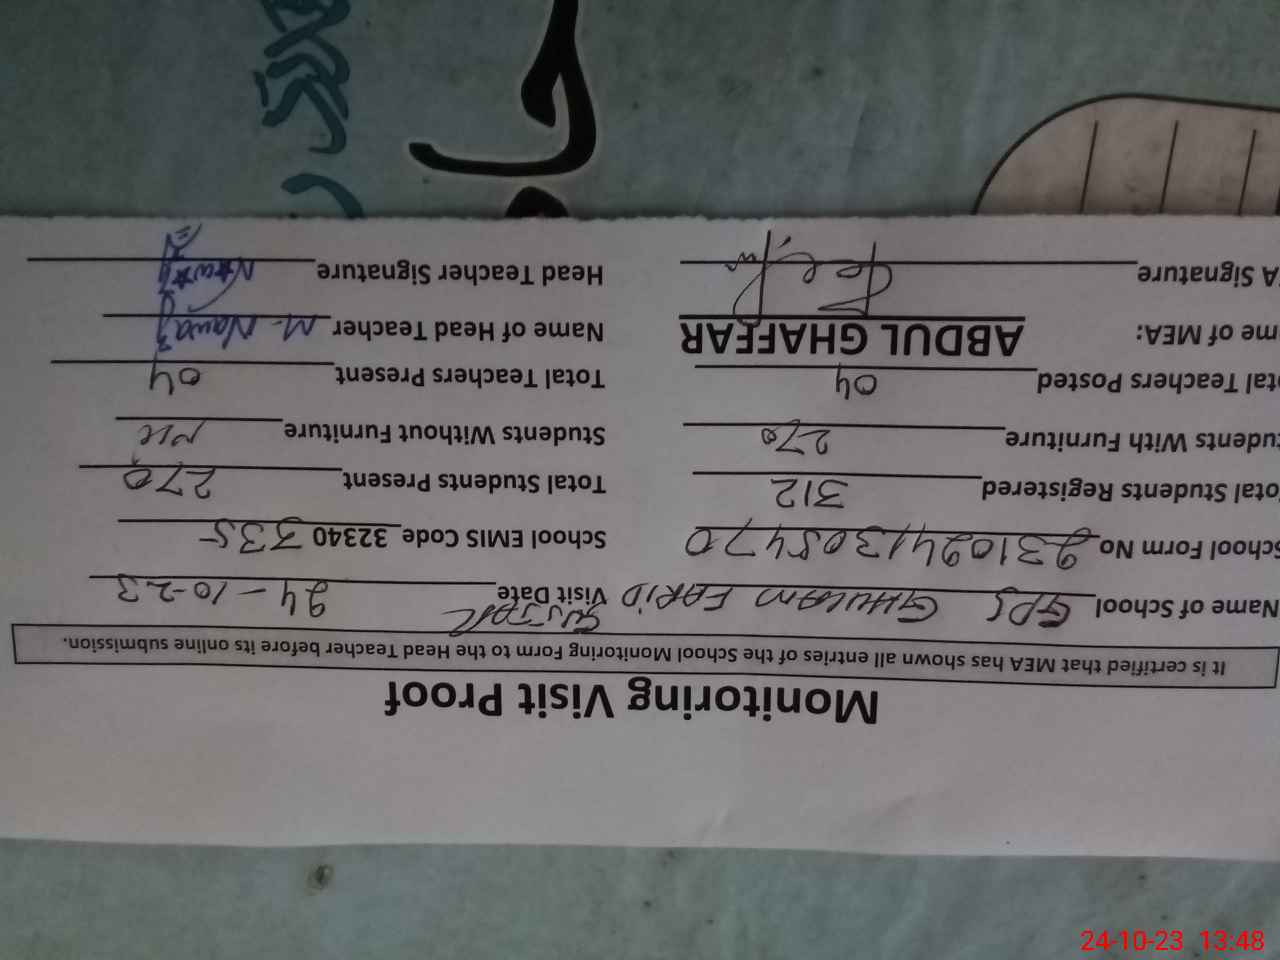 Monitoring Visit Proof
It is certified that MEA has shown all entries of the School Monitoring Form to the Head Teacher before its online submission.
Name of School GPS GHULAM FARID Visit Date 24-10-23
School Form No 2310241305470 School EMIS Code 32340335
Total Students Registered 312 Total Students Present 270
Students With Furniture 270 Students Without Furniture Nil
Total Teachers Posted 04 Total Teachers Present 04
Name of MEA: ABDUL GHAFFAR Name of Head Teacher M. Nawaz
MEA Signature Head Teacher Signature Nawaz
24-10-23 13:48